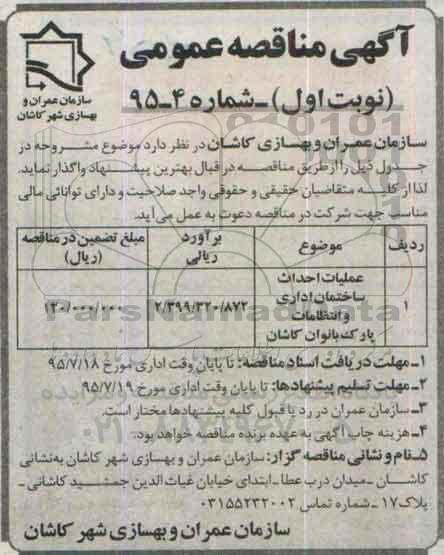 آگهی مناقصه عمومی
(نوبت اول) ـ شماره ۴ـ۹۵
سازمان عمران و
بهسازی شهر کاشان
سازمان عمران و بهسازی کاشان در نظر دارد موضوع مشروحه در
جدول ذیل را از طریق مناقصه در قبال بهترین پیشنهاد واگذار نماید.
لذا از کلیه متقاضیان حقیقی و حقوقی واجد صلاحیت و دارای توانائی مالی
مناسب جهت شرکت در مناقصه دعوت به عمل می آید.
ردیف موضوع برآورد ریالی مبلغ تضمین در مناقصه (ریال)
۱ عملیات احداث ساختمان اداری و انتظامات پارک بانوان کاشان ۲/۳۹۹/۳۲۰/۸۷۲ ۱۲۰/۰۰۰/۰۰۰
۱ـ مهلت دریافت اسناد مناقصه: تا پایان وقت اداری مورخ ۹۵/۷/۱۸
۲ـ مهلت تسلیم پیشنهادها: تا پایان وقت اداری مورخ ۹۵/۷/۱۹
۳ـ سازمان عمران در رد یا قبول کلیه پیشنهادها مختار است.
۴ـ هزینه چاپ آگهی به عهده برنده مناقصه خواهد بود.
۵ـ نام و نشانی مناقصه گزار: سازمان عمران و بهسازی شهر کاشان به نشانی
کاشان ـ میدان درب عطا ـ ابتدای خیابان غیاث الدین جمشید کاشانی ـ
پلاک ۱۷ ـ شماره تماس ۰۳۱۵۵۲۳۲۰۰۲
سازمان عمران و بهسازی شهر کاشان
ParsNamadData